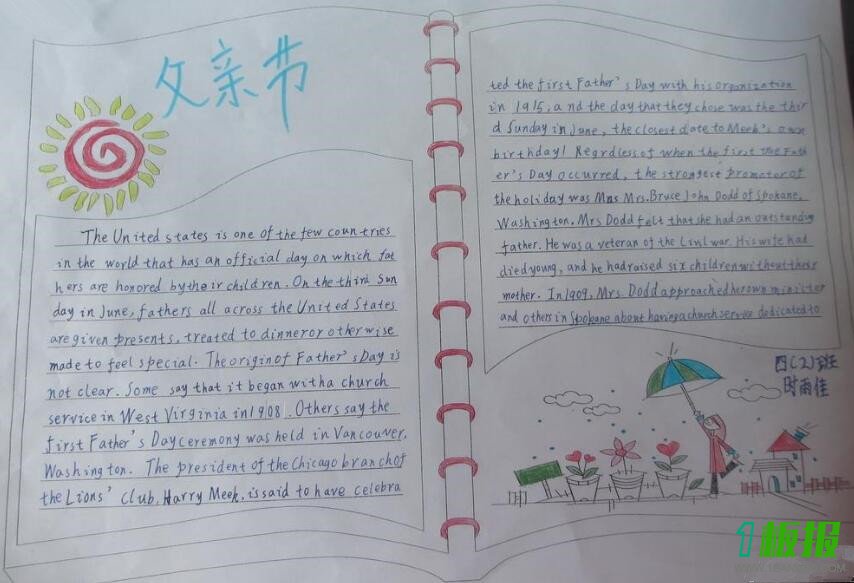 父亲节
The United states is one of the few countries
in the world that has an official day on which fat
hers are honored by their children. On the third Sun
day in June, fathers all across the United States
are given presents, treated to dinner or otherwise
made to feel special. The origin of Father's Day is
not clear. Some say that it began with a church
service in West Virginia in 1908. Others say the
first Father's Day ceremony was held in Vancouver,
Washington. The president of the Chicago branch of
the Lions' Club, Harry Meek, is said to have celebra
ted the first Father's Day with his organization
in 1915; and the day that they chose was the thir
d Sunday in June, the closest date to Meek's own
birthday! Regrdless of when the first the Fath
er's Day occurred, the strongest promoter of
the holiday was Mns Mrs. Bruce John Dodd of Spokane,
Washington. Mrs Dodd felt that she had an outstanding
father. He was a veteran of the war. His wife had
died young, and he had raised six children without their
mother. In 1909, Mrs. Dodd approached her own minister
and others in Spokane about having a church service dedicated to
四(2)班
时雨佳
1板报
WWW.1BANBAO.COM